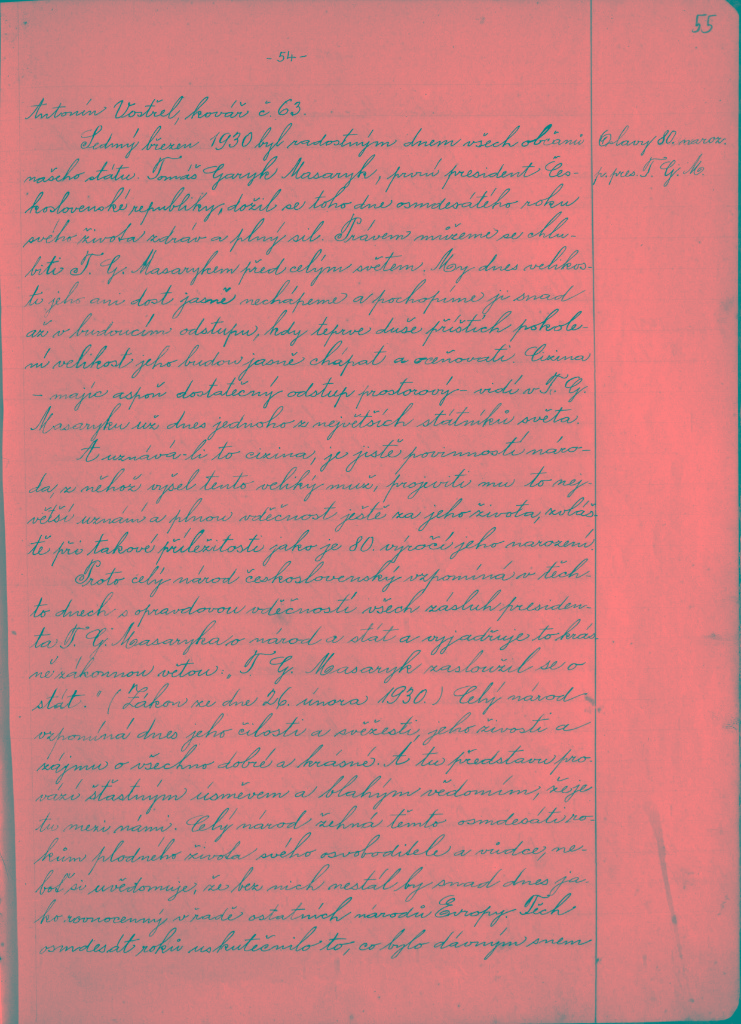 55
- 54 -
Antonín Vostřel, kovář č. 63.
Sedmý březen 1930 byl radostným dnem všech občanů
našeho státu. Tomáš Garyk Masaryk, první president Čes-
koslovenské republiky, dožil se toho dne osmdesátého roku
svého života zdráv a plný sil. Právem můžeme se chlu-
biti T. G. Masarykem před celým světem. My dnes velikos-
ti jeho ani dost jasně nechápeme a pochopíme ji snad
až v budoucím odstupu, kdy teprve duše příštích pokole-
ní velikost jeho budou jasně chápat a oceňovati. Cizina
- majíc aspoň dostatečný odstup prostorový - vidí v T. G.
Masaryku už dnes jednoho z největších státníků světa.
A uznává-li to cizina, je jistě povinností náro-
da, z něhož vyšel tento veliký muž, projeviti mu to nej-
větší uznání a plnou vděčnost ještě za jeho života, zvláš-
tě při takové příležitosti jako je 80. výročí jeho narození.
Proto celý národ československý vzpomíná v těch-
to dnech s opravdovou vděčností všech zásluh presiden-
ta T. G. Masaryka o národ a stát a vyjadřuje to krás-
ně zákonnou větou: „T. G. Masaryk zasloužil se o
stát." (Zákon ze dne 26. února 1930.) Celý národ
vzpomíná dnes jeho čilosti a svěžesti, jeho živosti a
zájmu o všechno dobré a krásné. A tu představu pro-
vází šťastným úsměvem a blahým vědomím, že je
tu mezi námi. Celý národ žehná těmto osmdesáti ro-
kům plodného života svého osvoboditele a vůdce, ne-
boť si uvědomuje, že bez nich nestál by snad dnes ja-
ko rovnocenný v řadě ostatních národů Evropy. Těch
osmdesát roků uskutečnilo to, co bylo dávným snem
Oslavy 80. naroz.
p. pres. T. G. M.